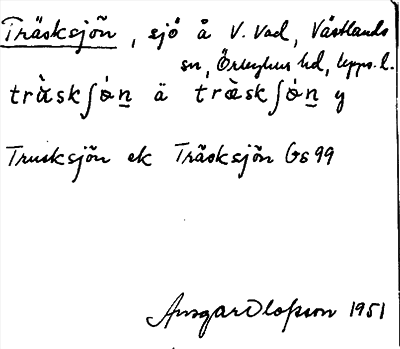 Träsksjön, sjö å V. Vad, Västlands
sn, Örbyhus hd, Upps. l.
trὰskʃό̵n̲ ä trὲskʃό̵n̲ y
Trusksjön ek Träsksjön Gs 99
Ansgar Olofsson 1951